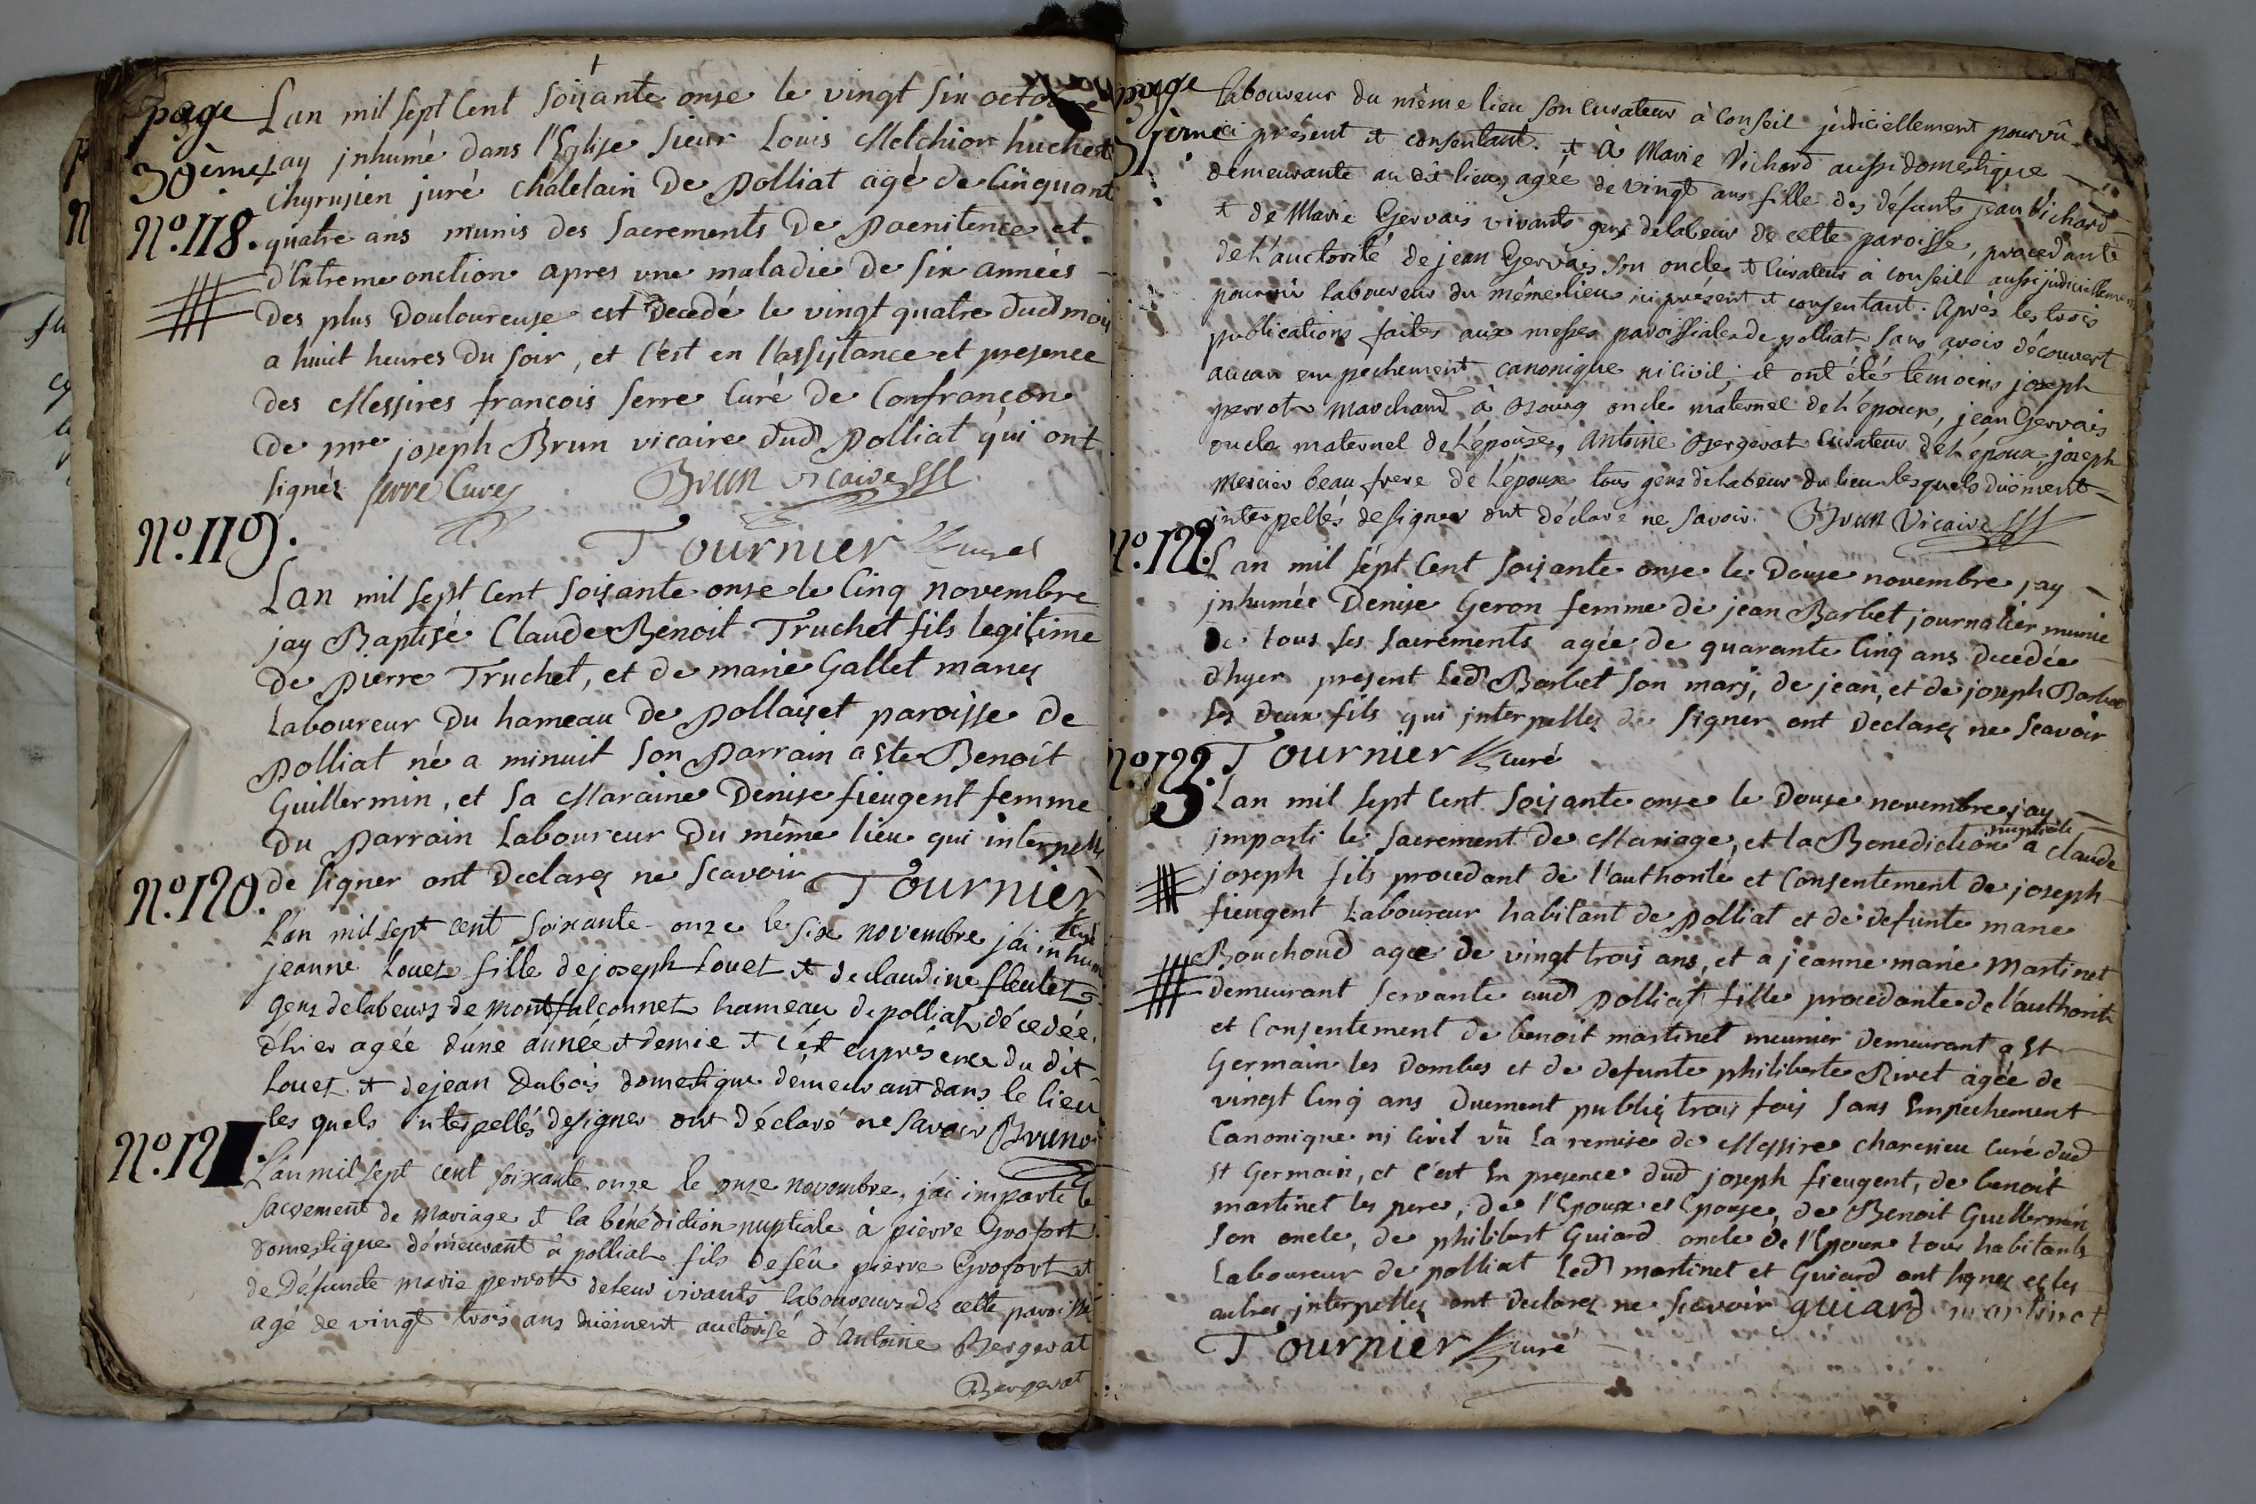 page
30ème
Lan mil sept Cent soixante onse le vingt six octobre
jay jnhumé dans l'Eglise sieur Louis Melchior huchet
Chyrugien juré Chatelain De Polliat agé de Cinquant
N.º 118. quatre ans munis des Sacrements De Poenitence et
d'Extreme onction apres une maladie de six années
des plus Douloureuse est Decedé le vingt quatre dud mois
a huit heures Du soir, et c'est en l'assistance et presence
des Messires françois serre Curé De Confrançon
De mre joseph Brun vicaire dud Polliat qui ont
signéz serre Curez Brun vicaire
Tournier Curé
N.º 119.
Lan mil sept Cent soixante onse le Cinq novembre
jay Baptisé Claude Benoit Truchet fils legitime
De Pierre Truchet, et de marie Gallet mariez
Laboureur Du hameau De Pollaiset paroisse De
Polliat né a minuit son Parrain a ete Benoit
Guillermin, et sa Maraine Denise fieugent femme
Du Parrain Laboureur Du même lieu qui interpellez
de signer ont Declarez ne scavoir Tournier
Curé
N.º 120.
L'an mil sept cent soixante onze le six novembre j'ai inhumé
jeanne Louet fille de joseph Louet et de claudine fleutet
gens de labeurs de montfalconnet hameau de polliat décedée
d'hier agée d'une année et demie et c'est en présence du dit
Louet et de jean Dubois domestique demeurant dans le lieu
les quels interpellés de signer ont déclaré ne savoir Brun v
N.º 121.
L'an mil sept cent soixante onze le onze novembre, j'ai imparti le
sacrement de mariage et la bénédiction nuptiale à pierre Grofort
domestique démeurant à polliat fils de feu pierre Grofort et
de Défunte marie perrot de leur vivants laboureurs de cette paroisse
agé de vingt trois ans düement auctorisé d'Antoine Bergerat
Bergerat
page
31ème
laboureur du même lieu son curateur à conseil judiciellement pourvû
ici présent et consentant. et à Marie Vichard aussi domestique
demeurante au dit lieu, agée de vingt ans fille des défunts jean Vichard
et de Marie Gervais vivants gens de labeur de cette paroisse, procedante
de L'auctorité de jean Gervais son oncle et curateur à conseil aussi judiciellement
pourvû laboureur du même lieu ici présent et consentant. Après les trois
publications faites aux messes paroissiales de polliat sans avoir découvert
aucun empechement canonique ni civil; et ont été témoins joseph
perrot marchand à Bourg oncle maternel de L'époux, jean Gervais
oncle maternel de L'épouse, Antoine Bergerat curateur de L'époux, joseph
Mercier beau frere de L'époux tous gens de labeur du lieu lesquels duëment
interpellés de signer ont déclaré ne savoir. Brun Vicaire
N.º 122.
Lan mil sept Cent soixante onse le Douse novembre jay
jnhumée Denise Geron femme de jean Barbet journalier munie
De tous ses sacrements agée de quarante Cinq ans Decedée
d'hyer present Led Barbet son mary, de jean, et de joseph Barbet
ses Deux fils qui jnterpellez de signer ont Declarez ne scavoir
Tournier Curé
N.º 123.
Lan mil sept Cent soixante onse le Douse novembre jay
imparti le sacrement de Mariage, et la Benediction nuptiale a Claude
joseph fils procedant de l'authorité et Consentement de joseph
fieugent Laboureur habitant de Polliat et de defunte marie
Bouchoud agée De vingt trois ans, et a jeanne marie Martinet
demeurant servante aud Polliat fille procedante de l'authorité
et Consentement de benoit martinet meunier Demeurant a St
Germain les Dombes et de defunte philiberte Rivet agée de
vingt Cinq ans Duement publiez trois fois sans Empechement
Canonique ni Civil vû la remise de Messire charesieu Curé dud
St Germain, et c'est En presence dud joseph fieugent, de benoit
martinet les pere, de l'Epoux et Epouse, de Benoit Guillermin
son oncle, de philibert Guiard oncle de l'Epoux tous habitants
Laboureur de polliat Led martinet et Guiard ont signez et les
autres jnterpellez ont Declarez ne scavoir guiard martinet
Tournier Curé